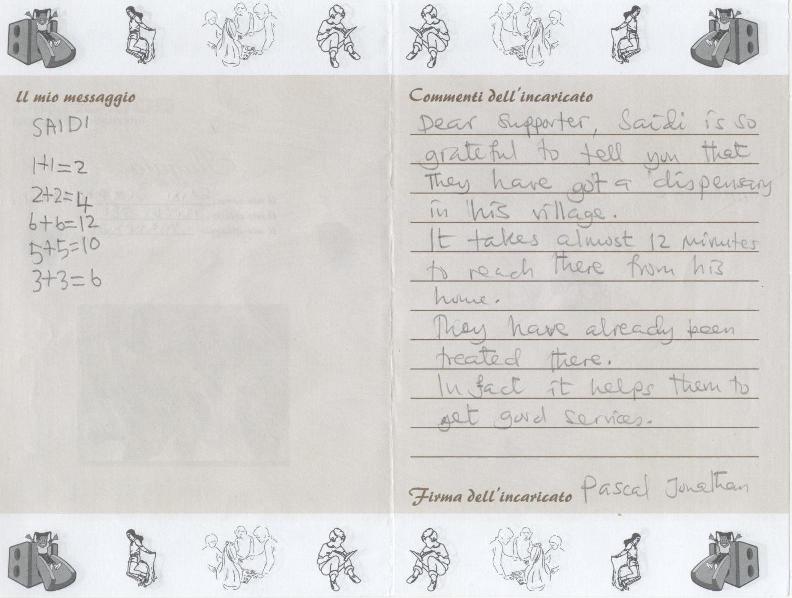 Il mio messaggio
SAIDI
1+1=2
2+2=4
6+6=12
5+5=10
3+3=6
Commenti dell'incaricato
Dear supporter, Saidi is so
grateful to tell you that
They have got a dispensary
in his village.
It takes almost 12 minutes
to reach there from his
home.
They have already been
treated there.
In fact it helps them to
get good services.
Firma dell'incaricato Pascal Jonathan